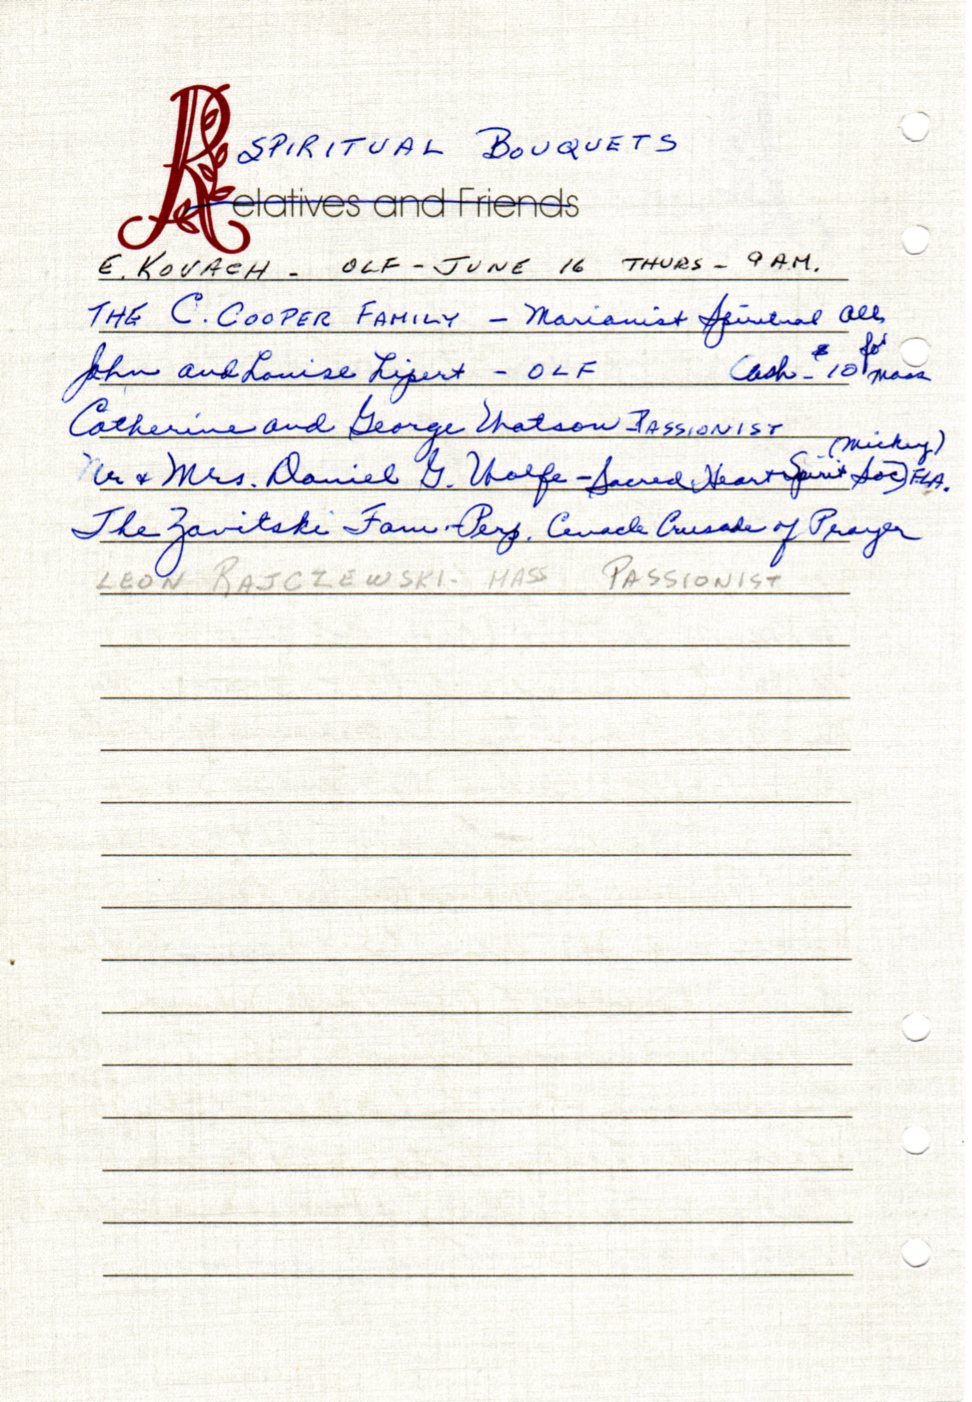 SPIRITUAL BOUQUETS
Relatives and Friends
E. KOVACH - OLF - JUNE 16 THURS - 9 A.M.
THE C. COOPER FAMILY - Marianist Spiritual All.
John and Louise Lipert - OLF Cash - $10 for Mass
Catherine and George Watson PASSIONIST
Mr & Mrs. Daniel G. Wolfe - Sacred Heart Spirit Soc) FLA. (Mickey)
The Zavitski Fam - Perp. Cenacle Crusade of Prayer
LEON RAJCZEWSKI - MASS PASSIONIST